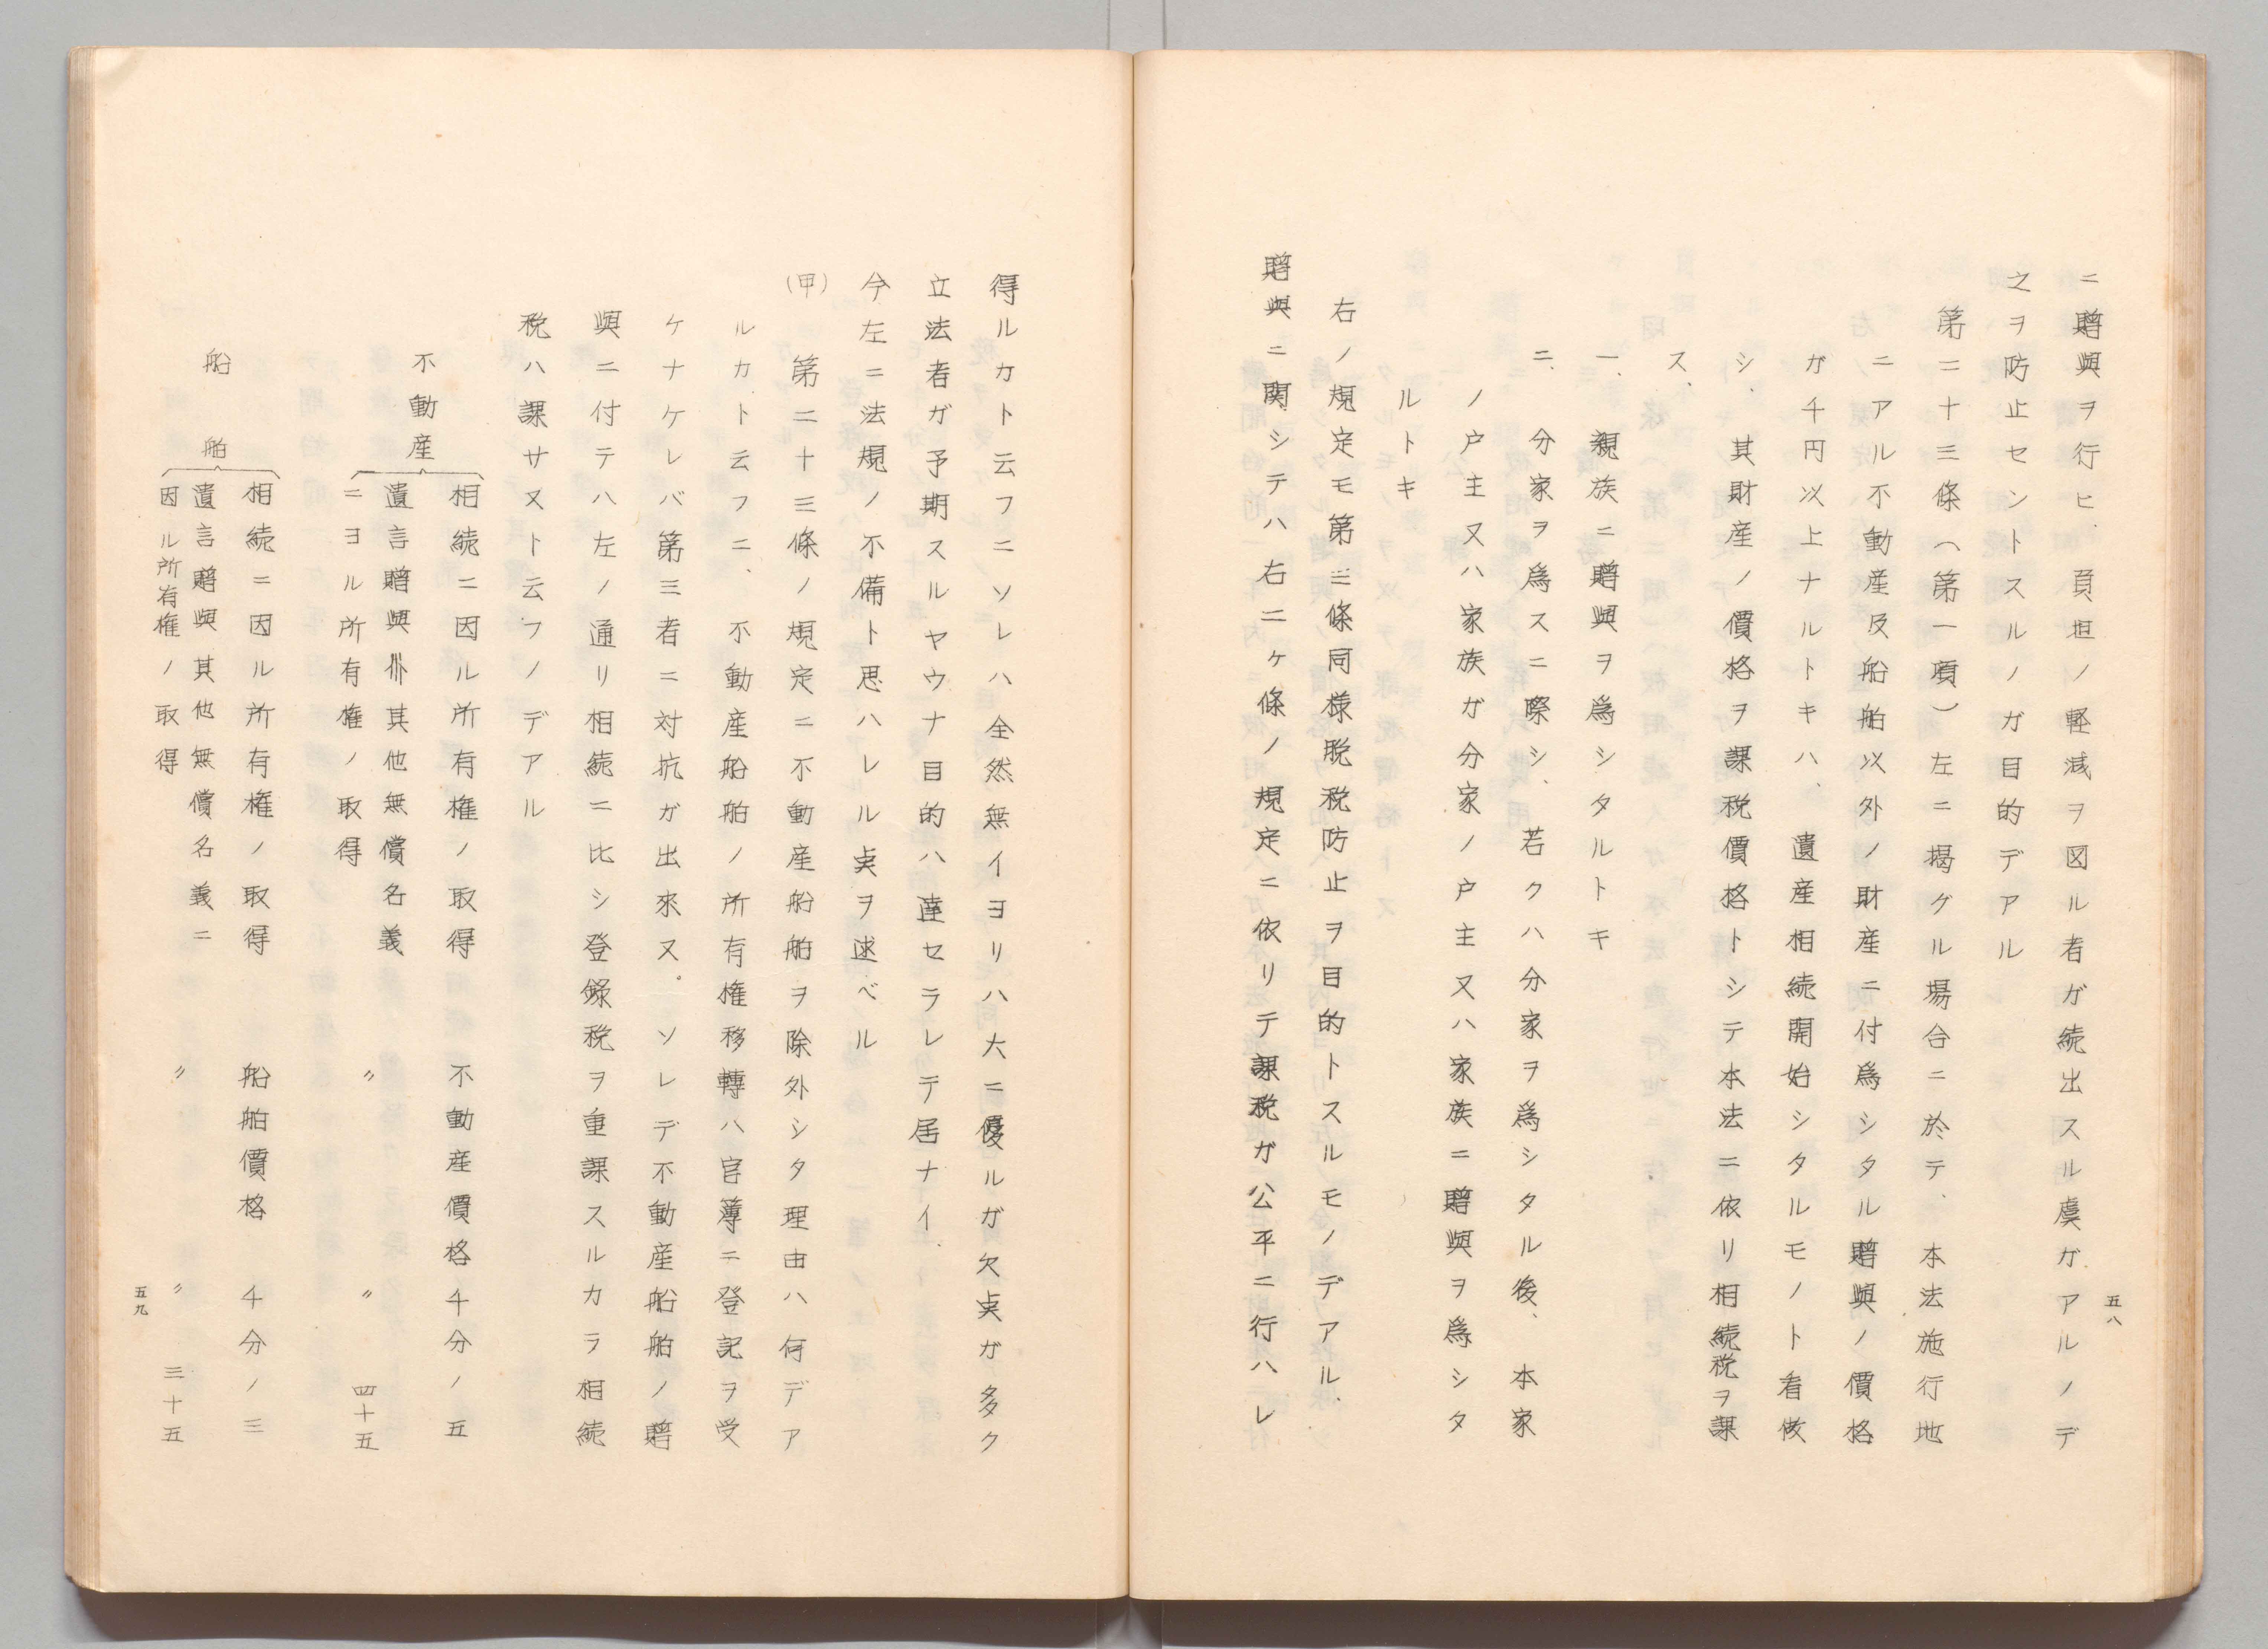 ニ贈與ヲ行ヒ、負担ノ軽減ヲ図ル者ガ続出スル虞ガアルノデ
之ヲ防止セントスルノガ目的デアル
第二十三條（第一項）左ニ揭グル場合ニ於テ、本法施行地
ニアル不動産及船舶以外ノ財産ニ付爲シタル贈與ノ價格
ガ千円以上ナルトキハ、遺産相続開始シタルモノト看做
シ、其財産ノ價格ヲ課税價格トシテ本法ニ依リ相続税ヲ課
ス、
一、親族ニ贈與ヲ爲シタルトキ
二、分家ヲ爲スニ際シ、若クハ分家ヲ爲シタル後、本家
ノ户主又ハ家族ガ分家ノ户主又ハ家族ニ贈與ヲ爲シタ
ルトキ
右ノ規定モ第三條同様脱税防止ヲ目的トスルモノデアル、
贈與ニ関シテハ右二ヶ條ノ規定ニ依リテ課税ガ公平ニ行ハレ
五八
得ルカト云フニソレハ全然無イヨリハ大ニ優ルガ欠点ガ多ク
立法者ガ予期スルヤウナ目的ハ達セラレテ居ナイ、
今左ニ法規ノ不備ト思ハレル点ヲ述ベル
（甲）第二十三條ノ規定ニ不動産船舶ヲ除外シタ理由ハ何デア
ルカト云フニ、不動産船舶ノ所有権移轉ハ官簿ニ登記ヲ受
ケナケレバ第三者ニ対抗ガ出來ヌ。ソレデ不動産船舶ノ贈
與ニ付テハ左ノ通リ相続ニ比シ登録税ヲ重課スルカラ相続
税ハ課サヌト云フノデアル
不動産
相続ニ因ル所有権ノ取得 不動産價格千分ノ五
遺言贈與其他無償名義
ニヨル所有権ノ取得 〃 〃 四十五
船舶
相続ニ因ル所有権ノ取得 船舶價格 千分ノ三
遺言贈與其他無償名義ニ
因ル所有権ノ取得 〃 〃 三十五
五九